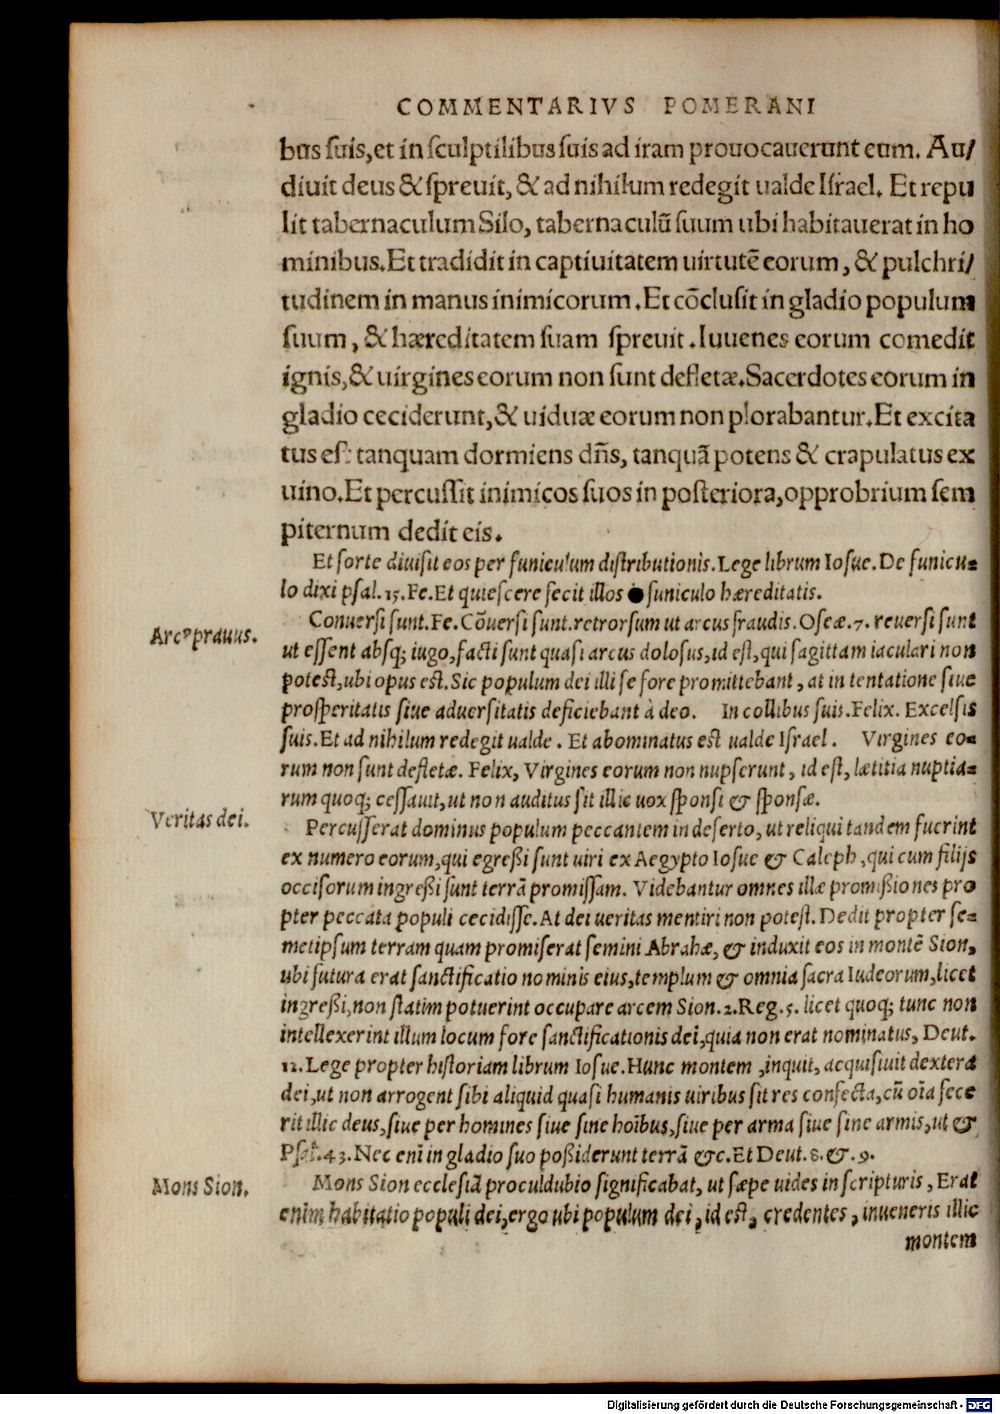 COMMENTARIVS POMERANI
bus suis, et in sculptilibus suis ad iram prouocauerunt eum. Au/
diuit deus & spreuit, & ad nihilum redegit ualde Israel. Et repu
lit tabernaculum Silo, tabernaculū suum ubi habitauerat in ho
minibus. Et tradidit in captiuitatem uirtutē eorum, & pulchri/
tudinem in manus inimicorum. Et cōclusit in gladio populum
suum, & hæreditatem suam spreuit. Iuuenes eorum comedit
ignis, & uirgines eorum non sunt defletæ. Sacerdotes eorum in
gladio ceciderunt, & uiduæ eorum non plorabantur. Et excita
tus est tanquam dormiens dñs, tanquā potens & crapulatus ex
uino. Et percussit inimicos suos in posteriora, opprobrium sem
piternum dedit eis.
Et sorte diuisit eos per funiculum distributionis. Lege librum Iosue. De funicu-
lo dixi psal. 15. Fe. Et quiescere fecit illos funiculo hæreditatis.
Arcꝰ prauus.
Conuersi sunt. Fe. Cōuersi sunt. retrorsum ut arcus fraudis. Oseæ. 7. reuersi sunt
ut essent absq; iugo, facti sunt quasi arcus dolosus, id est, qui sagittam iaculari non
potest, ubi opus est. Sic populum dei illi se fore promittebant, at in tentatione siue
prosperitatis siue aduersitatis deficiebant à deo. In collibus suis. Felix. Excelsis
suis. Et ad nihilum redegit ualde. Et abominatus est ualde Israel. Virgines eo-
rum non sunt defletæ. Felix, Virgines eorum non nupserunt, id est, lætitia nuptia-
rum quoq; cessauit, ut non auditus sit illic uox sponsi & sponsæ.
Veritas dei.
Percusserat dominus populum peccantem in deserto, ut reliqui tandem fuerint
ex numero eorum, qui egreßi sunt uiri ex Aegypto Iosue & Caleph, qui cum filijs
occisorum ingreßi sunt terrā promissam. Videbantur omnes illæ promißiones pro
pter peccata populi cecidisse. At dei ueritas mentiri non potest. Dedit propter se-
metipsum terram quam promiserat semini Abrahæ, & induxit eos in montē Sion,
ubi futura erat sanctificatio nominis eius, templum & omnia sacra Iudeorum, licet
ingreßi, non statim potuerint occupare arcem Sion. 2. Reg. 5. licet quoq; tunc non
intellexerint illum locum fore sanctificationis dei, quia non erat nominatus, Deut.
12. Lege propter historiam librum Iosue. Hunc montem, inquit, acquisiuit dextera
dei, ut non arrogent sibi aliquid quasi humanis uiribus sit res confecta, cū oīa fece
rit illic deus, siue per homines siue sine hoībus, siue per arma siue sine armis, ut &
Psal. 43. Nec enī in gladio suo poßiderunt terrā &c. Et Deut. 8. &. 9.
Mons Sion.
Mons Sion ecclesiā proculdubio significabat, ut sæpe uides in scripturis, Erat
enim habitatio populi dei, ergo ubi populum dei, id est, credentes, inueneris illic
montem
Digitalisierung gefördert durch die Deutsche Forschungsgemeinschaft - DFG